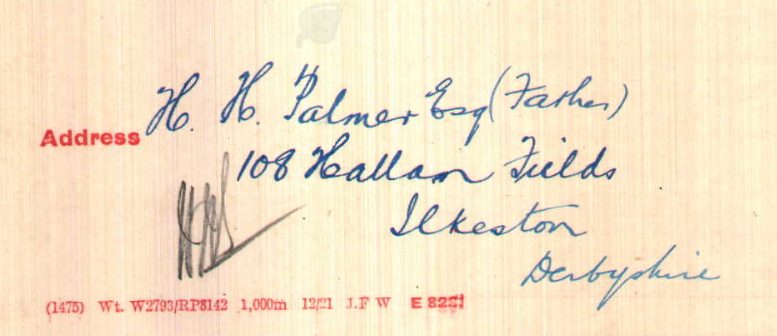 Address H. H. Palmer Esq (Father)
108 Hallam Fields
Ilkeston
Derbyshire
(1475) Wt. W2793/RP8142 1,000m 12/21 J.F W E 8221